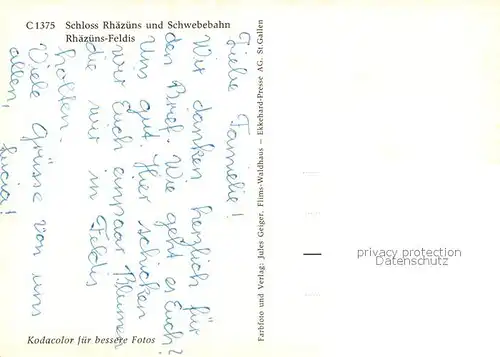 C 1375 Schloss Rhäzüns und Schwebebahn
Rhäzüns-Feldis
Liebe Familie!
Wir danken herzlich für
den Brief. Wie geht es Euch?
Uns gut. Hier schicken
wir Euch anpaar Blumen
die wir in Feldis
hatten.
Viele Grüsse von uns
allen,
Lucia!
Kodacolor für bessere Fotos
Farbfoto und Verlag: Jules Geiger, Flims-Waldhaus — Ekkehard-Presse AG, St. Gallen
privacy protection
Datenschutz